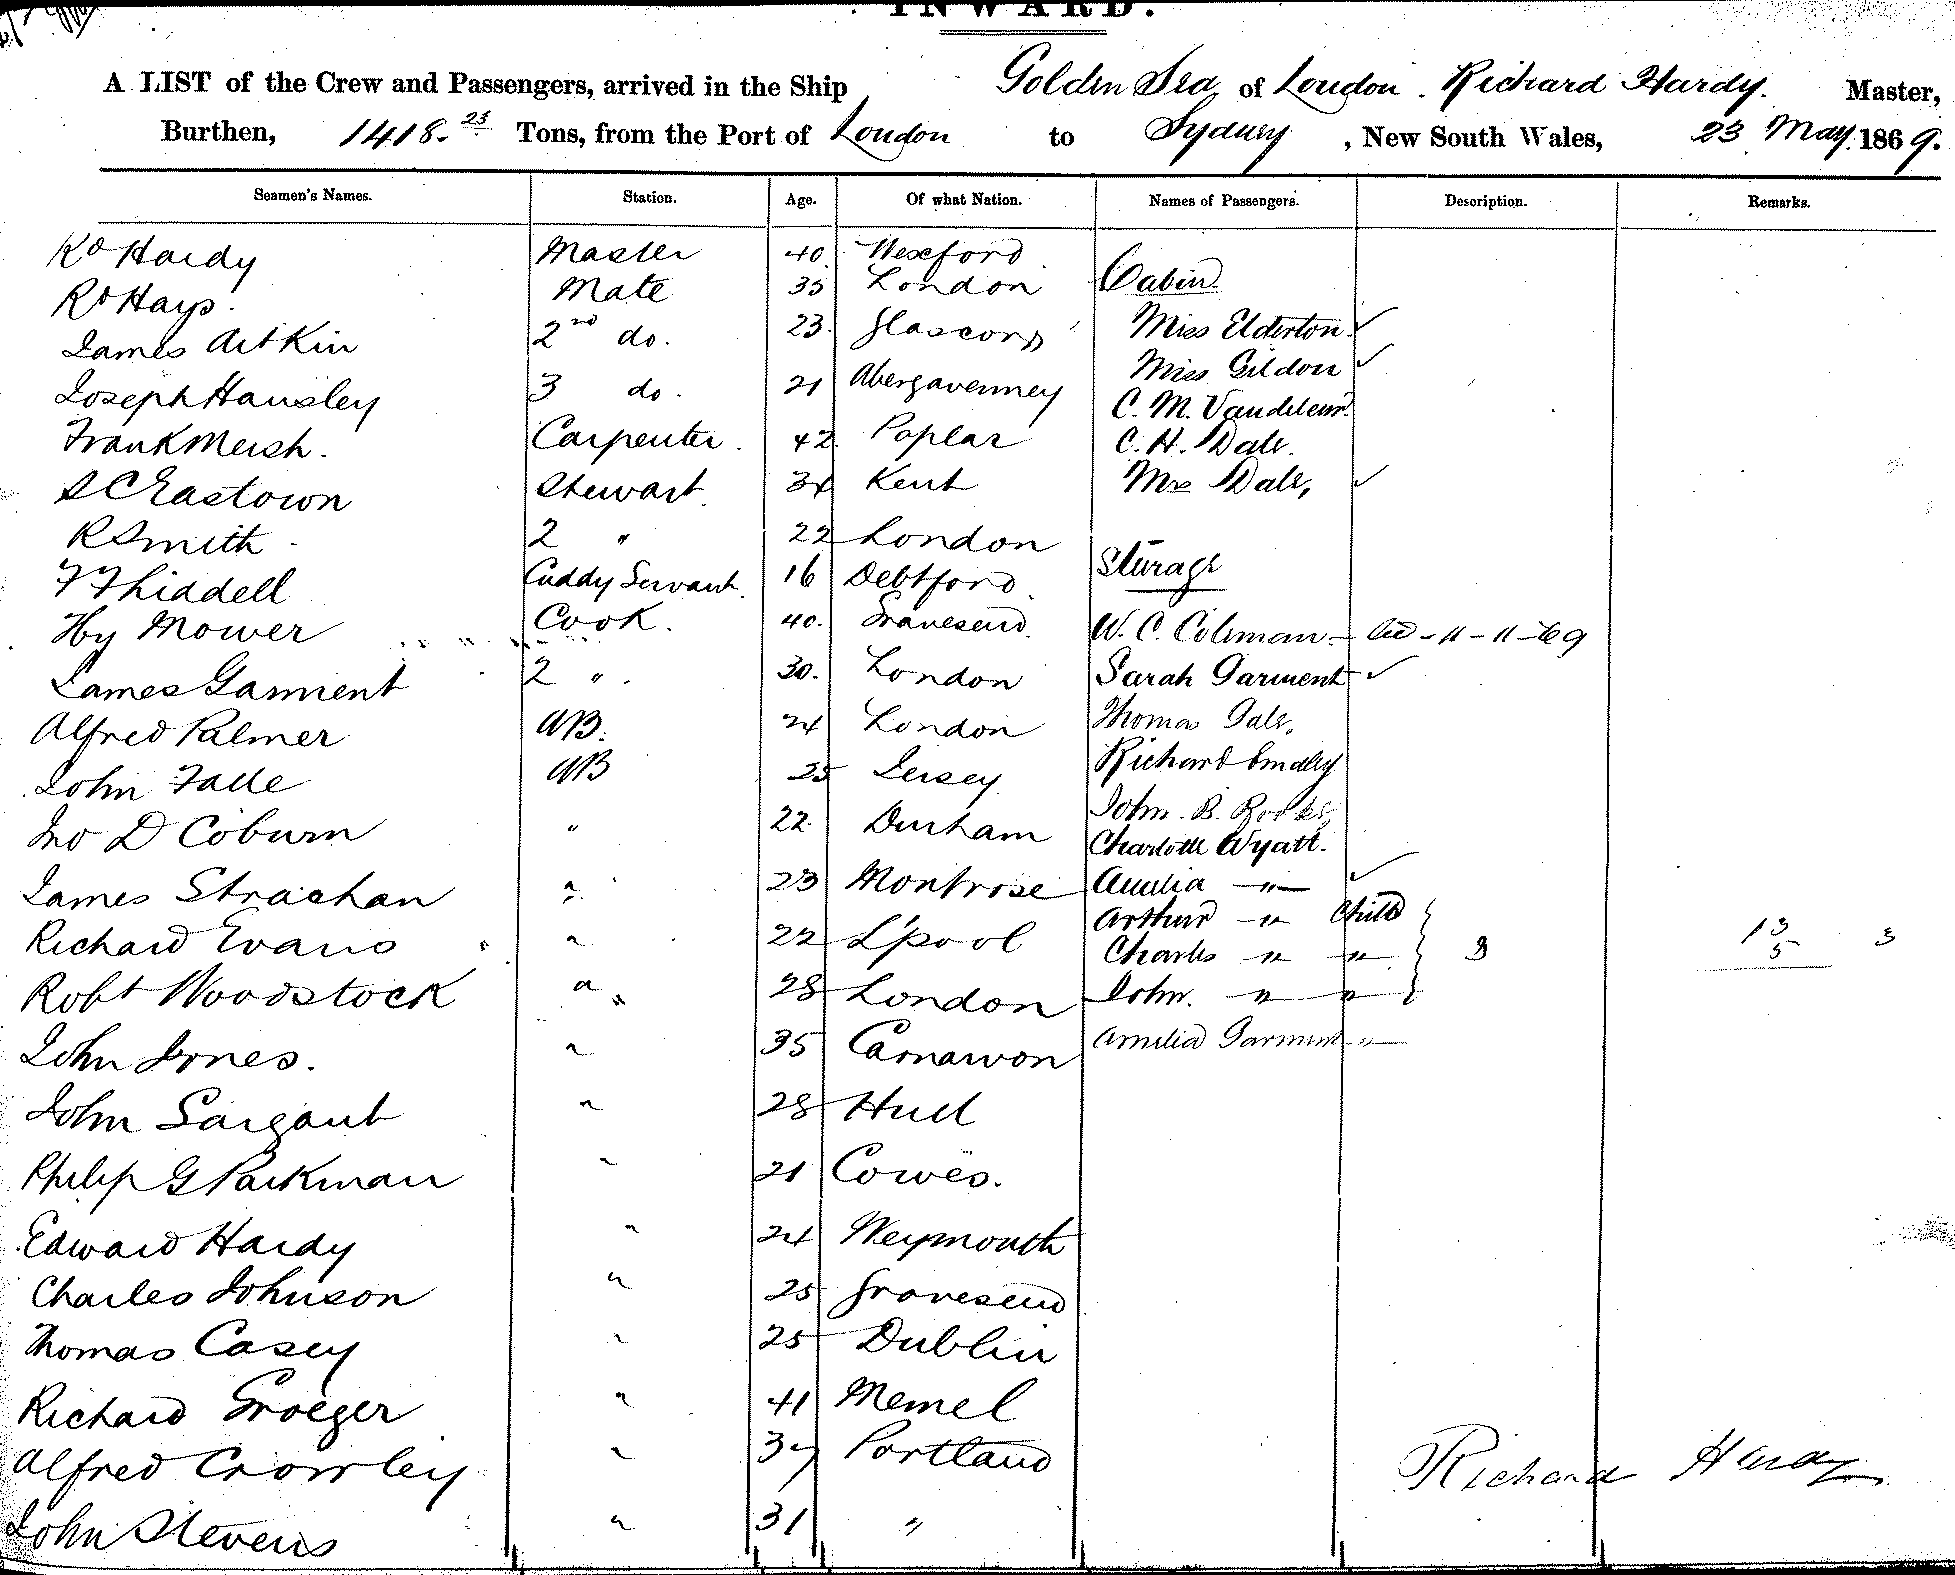 INWARD.
A LIST of the Crew and Passengers, arrived in the Ship Golden Sea of London. Richard Hardy. Master,
Burthen, 1418.25 Tons, from the Port of London to Sydney, New South Wales, 23 May 1869.
Seamen's Names. Station. Age. Of what Nation. Names of Passengers. Description. Remarks.
Rd Hardy Master 40. Wexford
Cabin
Rd Hays. Mate 35 London
James Aitkin 2nd do. 23. Glascow Miss Elderton.
Miss Gildon
Joseph Hansley 3 do. 21 Abergavenney C. M. Vandeleur.
Frank Mersh. Carpenter. 42 Poplar C. H. Dale.
S C Eastown Stewart. 34 Kent Mrs Dale,
R Smith 2 " 22 London
Sturage
F F Liddell Cuddy Servant. 16 Debtford.
Hy Mower Cook. 40. Gravesend. W. C. Coleman - - 11 - 11 - 69
James Garment 2 " . 30. London Sarah Garment
Alfred Palmer AB. 24 London Thomas Gale,
John Falle AB 25 Jersey Richard Smaley
John. B. Rooke,
Jno D Coburn " 22. Durham Charlotte Wyatt.
James Strachan " 23 Montrose Amelia "
Arthur " Child
Richard Evans " 22 L'pool Charles " " 3 13 3
5
Robt Woodstock " 28 London John. " "
John Jones. " 35 Carnarvon Amelia Garment "
John Sargant " 28 Hull
Philip G Parkman " 21 Cowes.
Edward Hardy " 24 Weymouth
Charles Johnson " 25 Gravesend
Thomas Casey " 25 Dublin
Richard Groeger " 41 Memel
Alfred Crowley " 37 Portland
Richard Hardy
John Stevens " 31 "